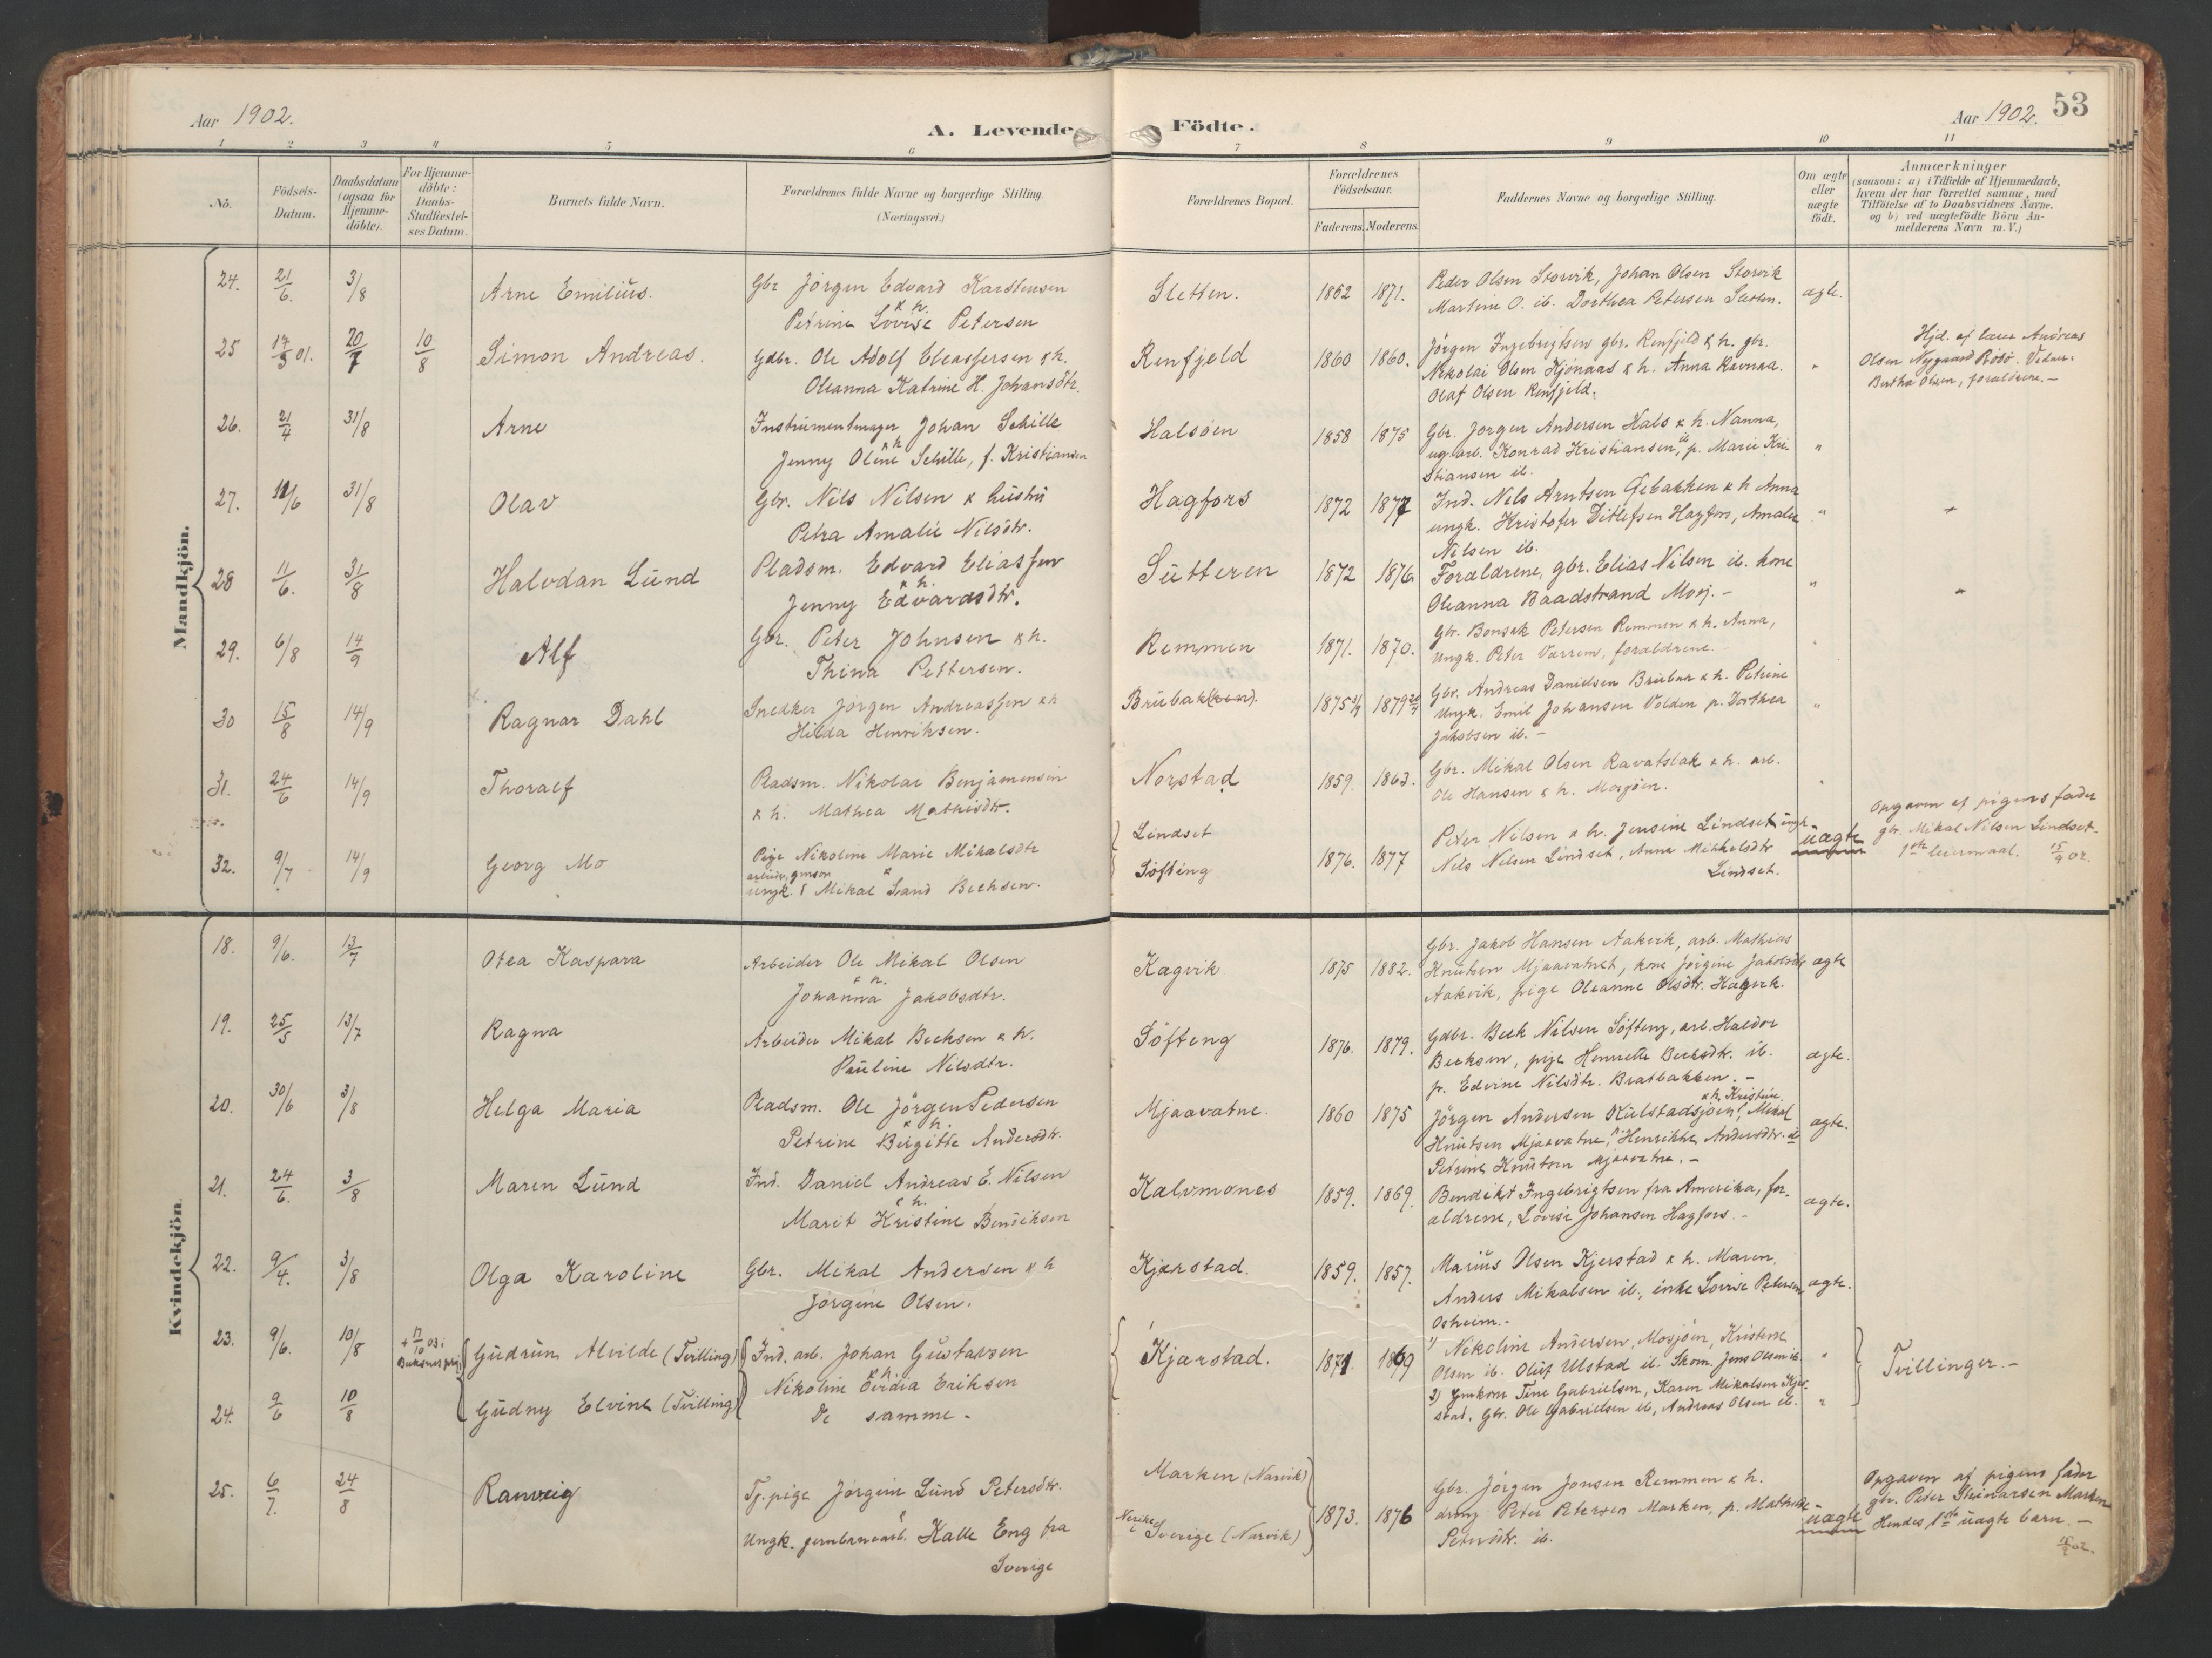 Aar 1902.
A. Levende
Födte.
Aar 1902. 53
1 2 3 4 5 6 7 8 9 10 11
No.
Födsels-Datum.
Daabsdatum (ogsaa for Hjemme-döbte).
For Hjemme-döbte: Daabs-Stadfæstel-ses Datum.
Barnets fulde Navn.
Forældrenes fulde Navne og borgerlige Stilling.
(Næringsvei.)
Forældrenes Bopæl.
Forældrenes Födselsaar.
Faderens. Moderens.
Faddernes Navne og borgerlige Stilling.
Om ægte eller uægte födt.
Anmærkninger
(saasom: a) i Tilfælde af Hjemmedaab,
hvem der har forrettet samme, med
Tilföielse af to Daabsvidners Navne,
og b) ved uægtefödte Börn An-
melderens Navn m. V.)
Mandkjön.
24. 21/6. 3/8 Arne Emilius. Gbr Jörgen Edvard Karstensen
& h.
Petrine Lovise Petersen
Sletten. 1862 1871.
Peder Olsen Storvik, Johan Olsen Storvik
Martine O. ib. Dorthea Petersen Sletten. ægte.
25 17/3 01. 20/7 10/8 Simon Andreas. Gdbr. Ole Adolf Eleassersen & h.
Oleanna Katrine H. Johansdtr.
Renfjeld 1860 1860.
Jörgen Ingebrigtsen gbr. Renfjeld & h. gbr.
Nikolai Olsen Kjönaas & h. Anna Ravnaa.
Olaf Olsen Renfjeld.
"
Hjd. af lærer Andreas
Olsen Nygaard Rösö. Vidner:
Bertha Olsen, forældrene. –
26. 21/4 31/8 Arne Instrumentmager Johan Schille
& h
Jenny Oline Schille, f. Kristiansen
Halsöen 1858 1875
Gbr. Jörgen Andersen Hals & h. Nanna,
ug. arb. Konrad Kristiansen ib, p. Marie Kri-
stiansen ib.
"
27. 11/6 31/8 Olav Gbr. Nils Nilsen & hustru
Petra Amalie Nilsdtr.
Hagfors 1872 1877
Ind. Nils Arntsen Öebakken & h Anna
ungk. Kristofer Ditlefsen Hagfors, Amalie
Nilsen ib.
"
28 11/6. 31/8 Halvdan Lund Pladsm. Edvard Eliassen
& h.
Jenny Edvardsdtr.
Sutteren 1872 1876
Forældrene, gbr. Elias Nilsen ib. kone
Oleanna Baadstrand Mosj. –
"
29. 6/8 14/9 Alf Gbr. Peter Johnsen & h.
Thina Pettersen.
Remmen 1871. 1870.
Gbr. Bonsak Petersen Remmen & h. Anna,
Ungk. Peter Værrem, forældrene.
30 15/8 14/9 Ragnar Dahl Snedker Jörgen Andreassen & h
Hilda Henriksen.
Brubak(ken). 1875 1879
Gbr. Andreas Danielsen Brubak & h. Petrine
Ungk. Emil Johansen Volden p. Dorthea
Jakobsen ib. –
"
31. 24/6 14/9 Thoralf Pladsm. Nikolai Benjaminsen
& h. Mathea Mathisdtr.
Norstad 1859. 1863.
Gbr. Mikal Olsen Ravatslak & h. arb.
Ole Hansen & h. Mosjöen.
32. 9/7 14/9 Georg Mo Pige Nikoline Marie Mikalsdtr
&
ungk. Mikal Sand Becksen.
Lindset
Söfting 1876. 1877
Peter Nilsen & h. Jensine Lindset ungk
Nils Nilsen Lindset, Anna Mikkelsdtr
Lindset.
uægte
Opgaven af pigens fader
gbr. Mikal Nilsen Lindset.
1ste leiermaal. 15/9 02.
Kvindekjön.
18. 9/6. 13/7 Otea Kaspara Arbeider Ole Mikal Olsen
& h.
Johanna Jakobsdtr.
Kagvik 1875 1882.
Gbr. Jakob Hansen Aakvik, arb. Mathias
Knutsen Mjaavatnet, kone Jörgine Jakobsdtr
Aakvik, pige Oleanne Olsdtr. Kagvik.
ægte
19. 25/5 13/7 Ragna Arbeider Mikal Becksen & h.
Pauline Nilsdtr.
Söfteng 1876. 1879.
Gdbr. Beck Nilsen Söfteng, arb. Haldor
Becksen, pige Henriette Becksdtr. ib.
p. Edvine Nilsdtr. Bratbakken. –
ægte.
20. 30/6 3/8 Helga Maria Pladsm. Ole Jörgen Pedersen
& h.
Petrine Birgitte Andersdtr.
Mjaavatne. 1860 1875
& h. Kristine.
Jörgen Andersen Kulstadsjöen, Mikal
Knutsen Mjaavatne, Henrikke Andersdtr. ib
Petrine Knutsen Mjaavatne. –
ægte.
21. 24/6. 3/8 Maren Lund Ind. Daniel Andreas E. Nilsen
& h.
Marit Kristine Bendiksen
Kalvmones 1859. 1869.
Bendikt Ingebrigtsen fra Amerika, for-
ældrene, Lovise Johansen Hagfors. –
ægte.
22. 9/4. 3/8 Olga Karoline Gbr. Mikal Andersen & h
Jörgine Olsen.
Kjærstad. 1859. 1857.
Marius Olsen Kjerstad & h. Maren.
Anders Mikalsen ib, enke Lovise Petersen
Osheim. –
ægte.
23. 9/6. 10/8 + 17/10 03 i Buksnes prg. Gudrun Alvilde (Tvilling) Ind. arb. Johan Gustavsen
& h.
Nikoline Ovidia Eriksen
Kjærstad. 1871 1869
1) Nikoline Andersen, Mosjöen, Kristene
Olsen ib. Oluf Ulstad ib. Skom. Jens Olsen ib.
"
Tvillinger. –
24. 9/6 10/8 Gudny Elvine (Tvilling) De samme.
2) Gmkone Tine Gabrielsen, Karen Mikalsen Kjer-
stad, Gbr. Ole Gabrielsen ib, Andreas Olsen ib.
"
25. 6/7. 24/8 Ranveig Tj. pige Jörgine Lund Petersdtr.
&
Ungk. jernbanearb. Kalle Eng fra
Sverige
Marken (Narvik)
Nerike i Sverige (Narvik) 1873. 1876
Gbr. Jörgen Jonsen Remmen & h.
dreng Peter Petersen Marken, p. Mathilde
Petersdtr. ib.
uægte
Opgaven af pigens fader
gbr. Peter Steinarsen Marken
Hendes 1ste uægte barn. –